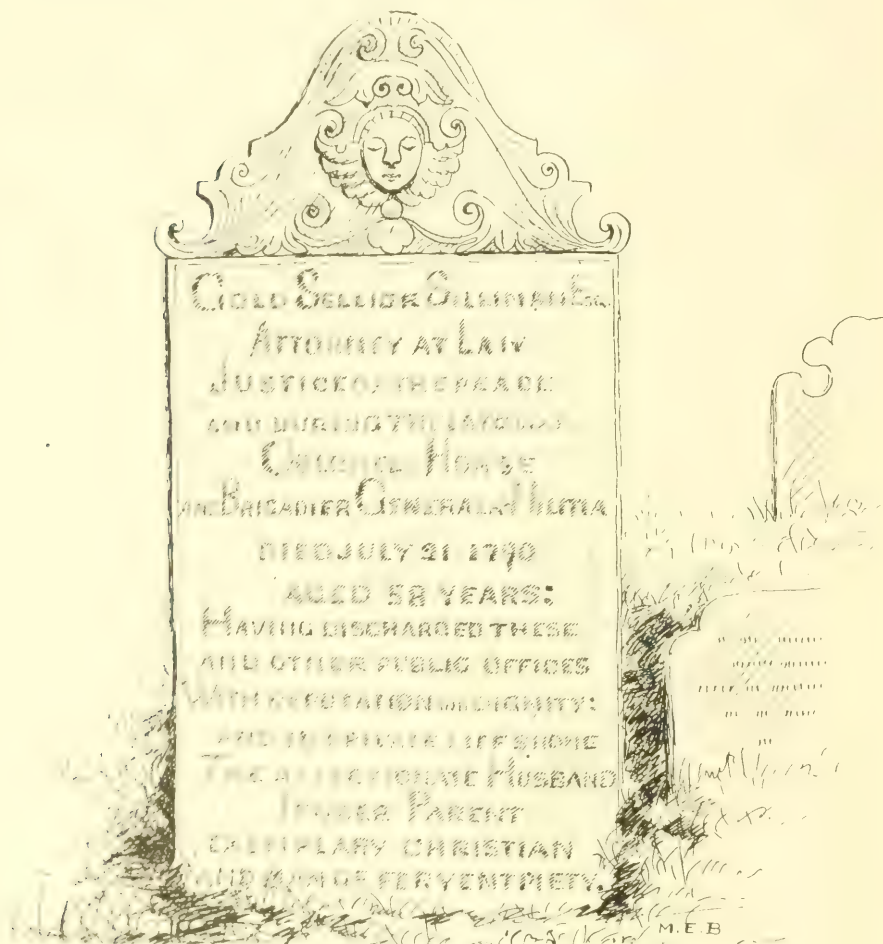 GOLD SELLICK SILLIMAN ESQ.
ATTORNEY AT LAW
JUSTICE OF THE PEACE
AND DURING THE LATE WAR
COLONEL HORSE
AND BRIGADIER GENERAL OF MILITIA
DIED JULY 21 1790
AGED 58 YEARS:
HAVING DISCHARGED THESE
AND OTHER PUBLIC OFFICES
WITH REPUTATION AND DIGNITY:
AND IN PRIVATE LIFE SHONE
THE AFFECTIONATE HUSBAND
TENDER PARENT
EXEMPLARY CHRISTIAN
AND MAN OF FERVENT PIETY.
M.E.B